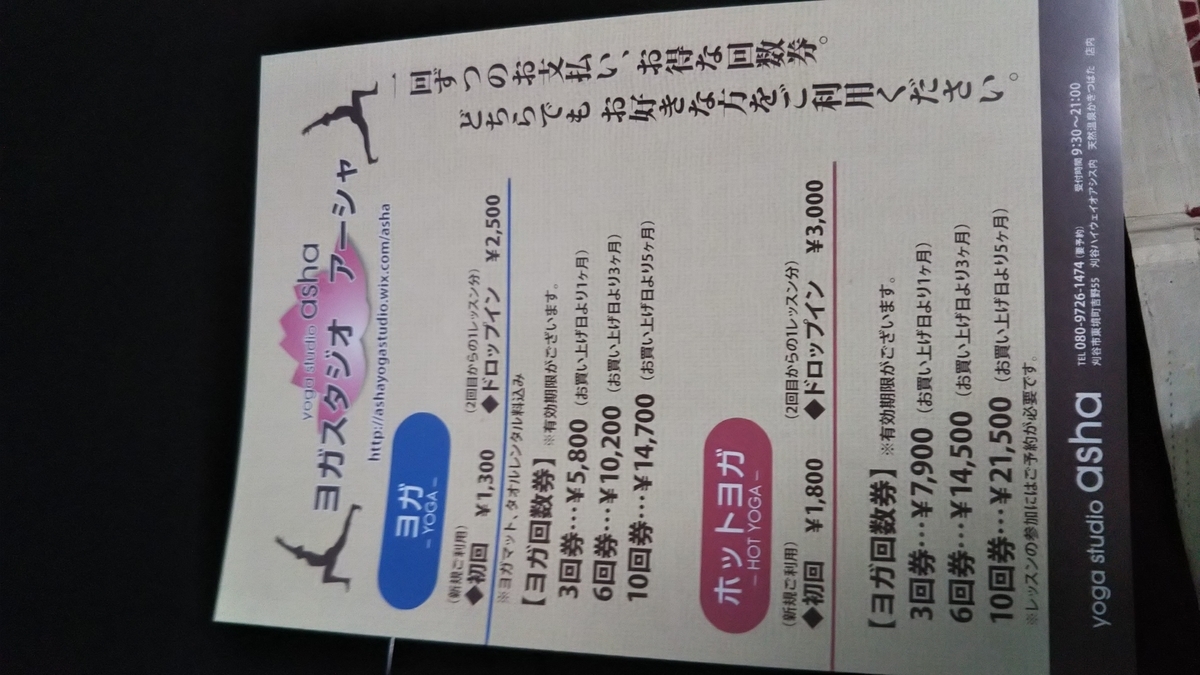 yoga studio asha
ヨガスタジオ アーシャ
http://ashayogastudio.wix.com/asha
一回ずつのお支払い、お得な回数券。
どちらでもお好きな方をご利用ください。
ヨガ
– YOGA –
(新規ご利用)
◆初回 ¥1,300
(2回目からの1レッスン分)
◆ドロップイン ¥2,500
※ヨガマット、タオルレンタル料込み
【ヨガ回数券】 ※有効期限がございます。
3回券…¥5,800(お買い上げ日より1ヶ月)
6回券…¥10,200(お買い上げ日より3ヶ月)
10回券…¥14,700(お買い上げ日より5ヶ月)
ホットヨガ
– HOT YOGA –
(新規ご利用)
◆初回 ¥1,800
(2回目からの1レッスン分)
◆ドロップイン ¥3,000
【ヨガ回数券】 ※有効期限がございます。
3回券…¥7,900(お買い上げ日より1ヶ月)
6回券…¥14,500(お買い上げ日より3ヶ月)
10回券…¥21,500(お買い上げ日より5ヶ月)
※レッスンの参加にはご予約が必要です。
yoga studio asha
TEL 080-9726-1474(要予約) 受付時間 9:30〜21:00
刈谷市東境町吉野55 刈谷ハイウェイオアシス内 天然温泉かきつばた 店内